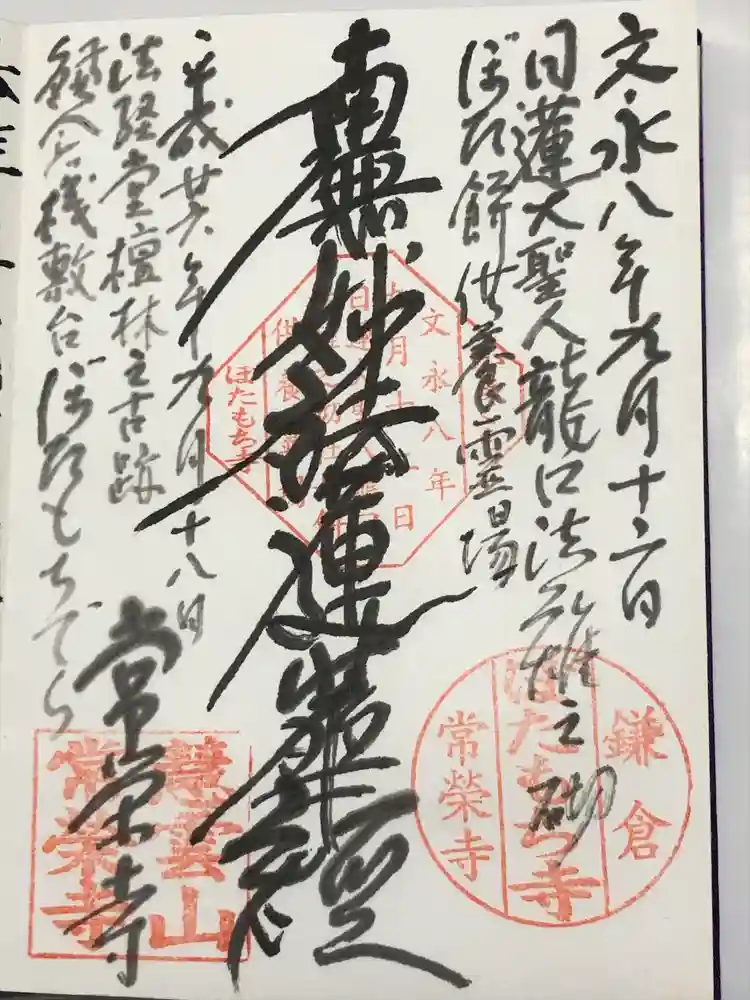 文永八年九月十二日
日蓮大聖人龍口法難之砌
ぼた餅供養霊場
南無妙法蓮華経
平成廿六年九月十八日
法経堂檀林之古跡
鎌倉桟敷台ぼたもちでら
常栄寺
文永八年
ぼたもち寺
鎌倉
ぼたもち寺
常榮寺
慧雲山
常栄寺